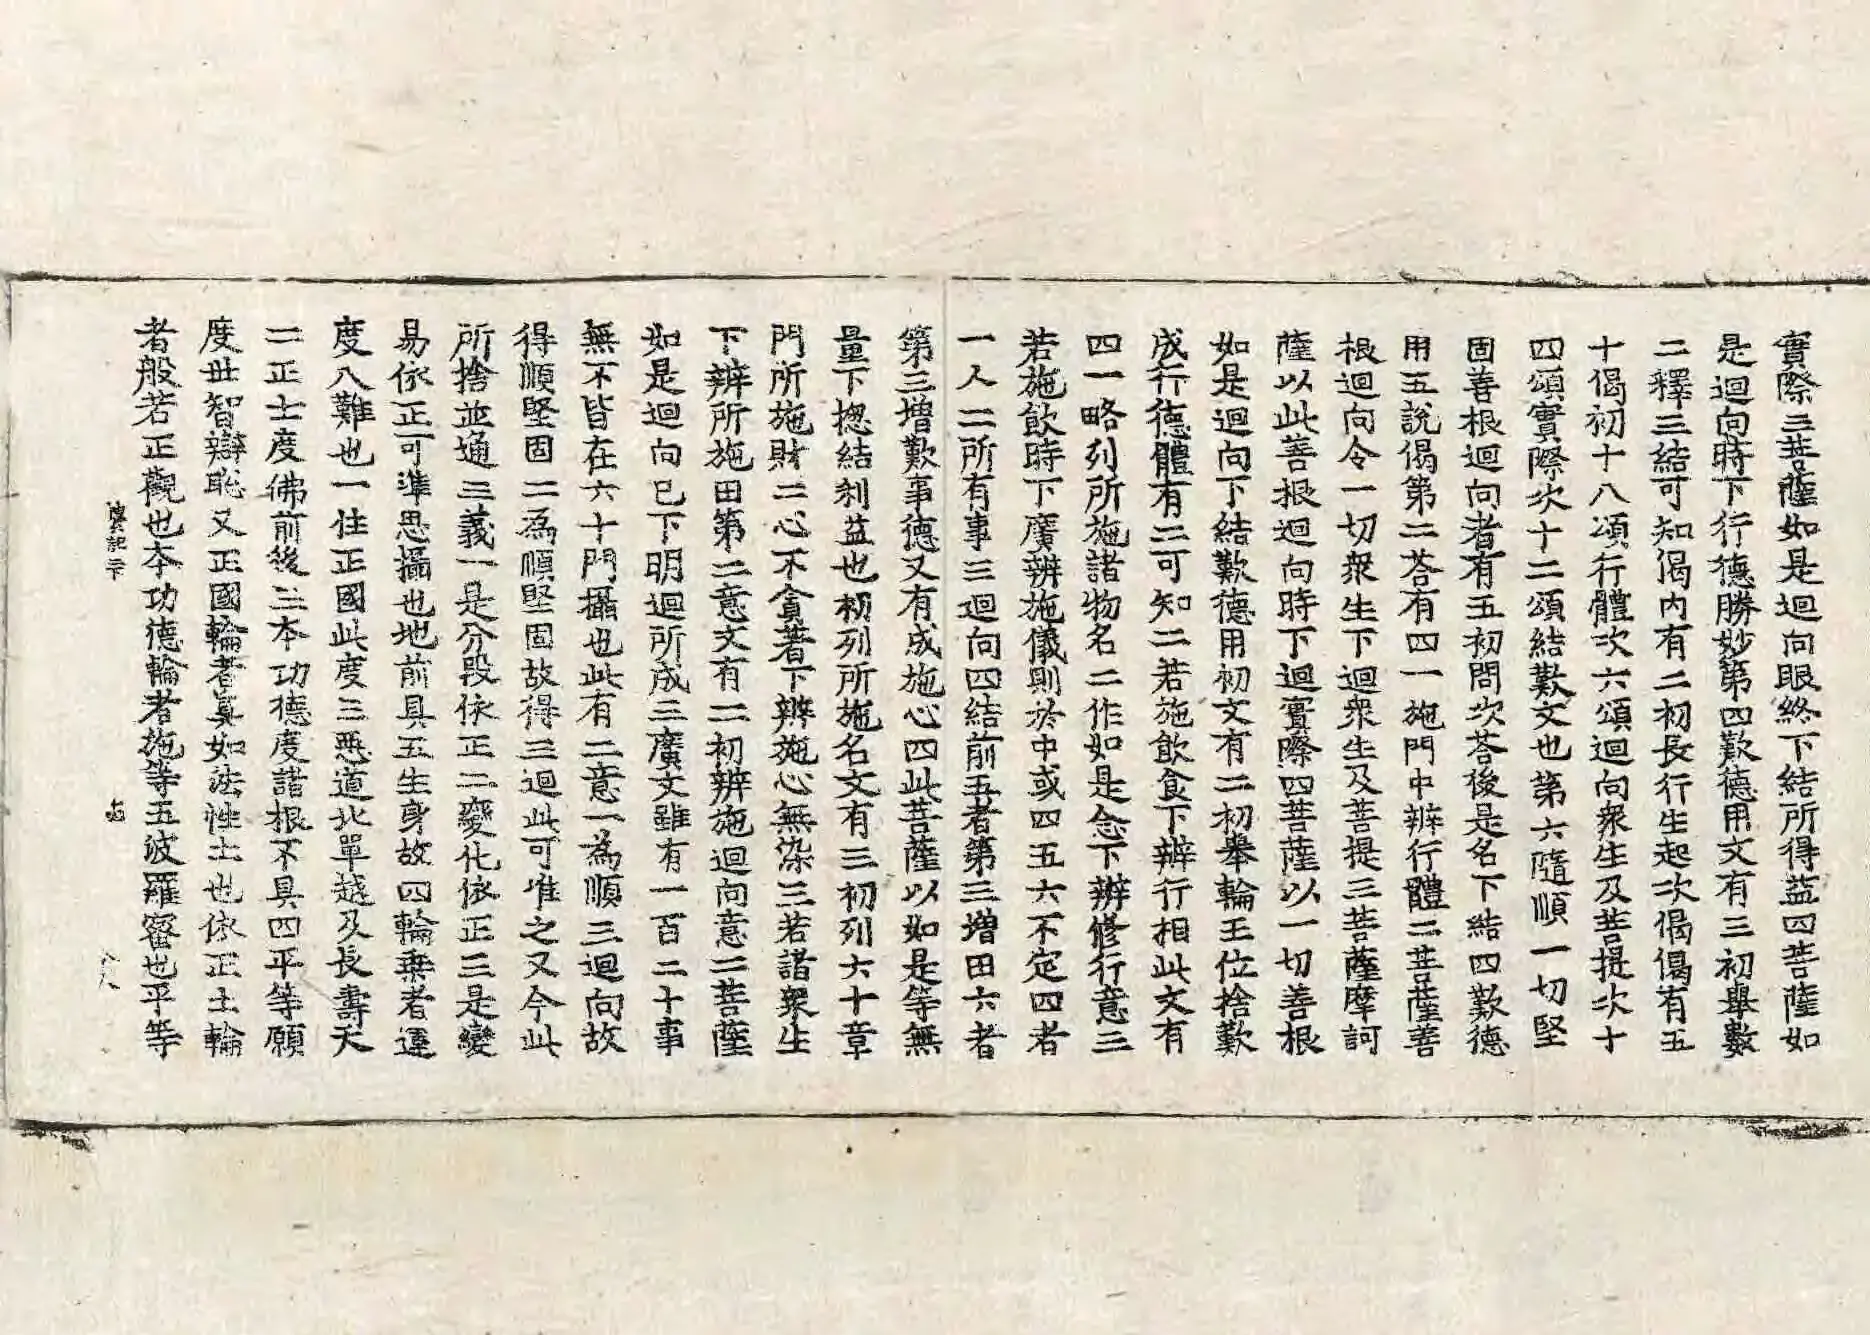 實際三菩薩如是迴向眼終下結所得益四菩薩如
是迴向時下行德勝妙第四歎德用文有三初舉數
二釋三結可知偈內有二初長行生起次偈偈有五
十偈初十八頌行體次六頌迴向衆生及菩提次十
四頌實際次十二頌結歎文也第六隨順一切堅
固善根迴向者有五初問次荅後是名下結四歎德
用五說偈第二荅有四一施門中辨行體二菩薩善
根迴向令一切衆生下迴衆生及菩提三菩薩摩訶
薩以此善根迴向時下迴實際四菩薩以一切善根
如是迴向下結歎德用初文有二初舉輪王位捨歎
成行德體有二可知二若施飲食下辨行相此文有
四一略列所施諸物名二作如是念下辨修行意三
若施飲時下廣辨施儀則於中或四五六不定四者
一人二所有事三迴向四結前五者第三增田六者
第三增歎事德又有成施心四此菩薩以如是等無
量下揔結利益也初列所施名文有三初列六十章
門所施財二心不貪著下辨施心無染三若諸衆生
下辨所施田第二意文有二初辨施迴向意二菩薩
如是迴向已下明迴所成三廣文雖有一百二十事
無不皆在六十門攝也此有二意一為順三迴向故
得順堅固二為順堅固故得三迴此可准之又今此
所捨並通三義一是分段依正二變化依正三是變
易依正可準思攝也地前具五生身故四輪乗者運
度八難也一住正國此度三惡道北單越及長壽天
二正士度佛前後三本功德度諸根不具四平等願
度世智辯聡又正國輪者真如法性土也依正士輪
者般若正觀也本功德輪者施等五波羅蜜也平等